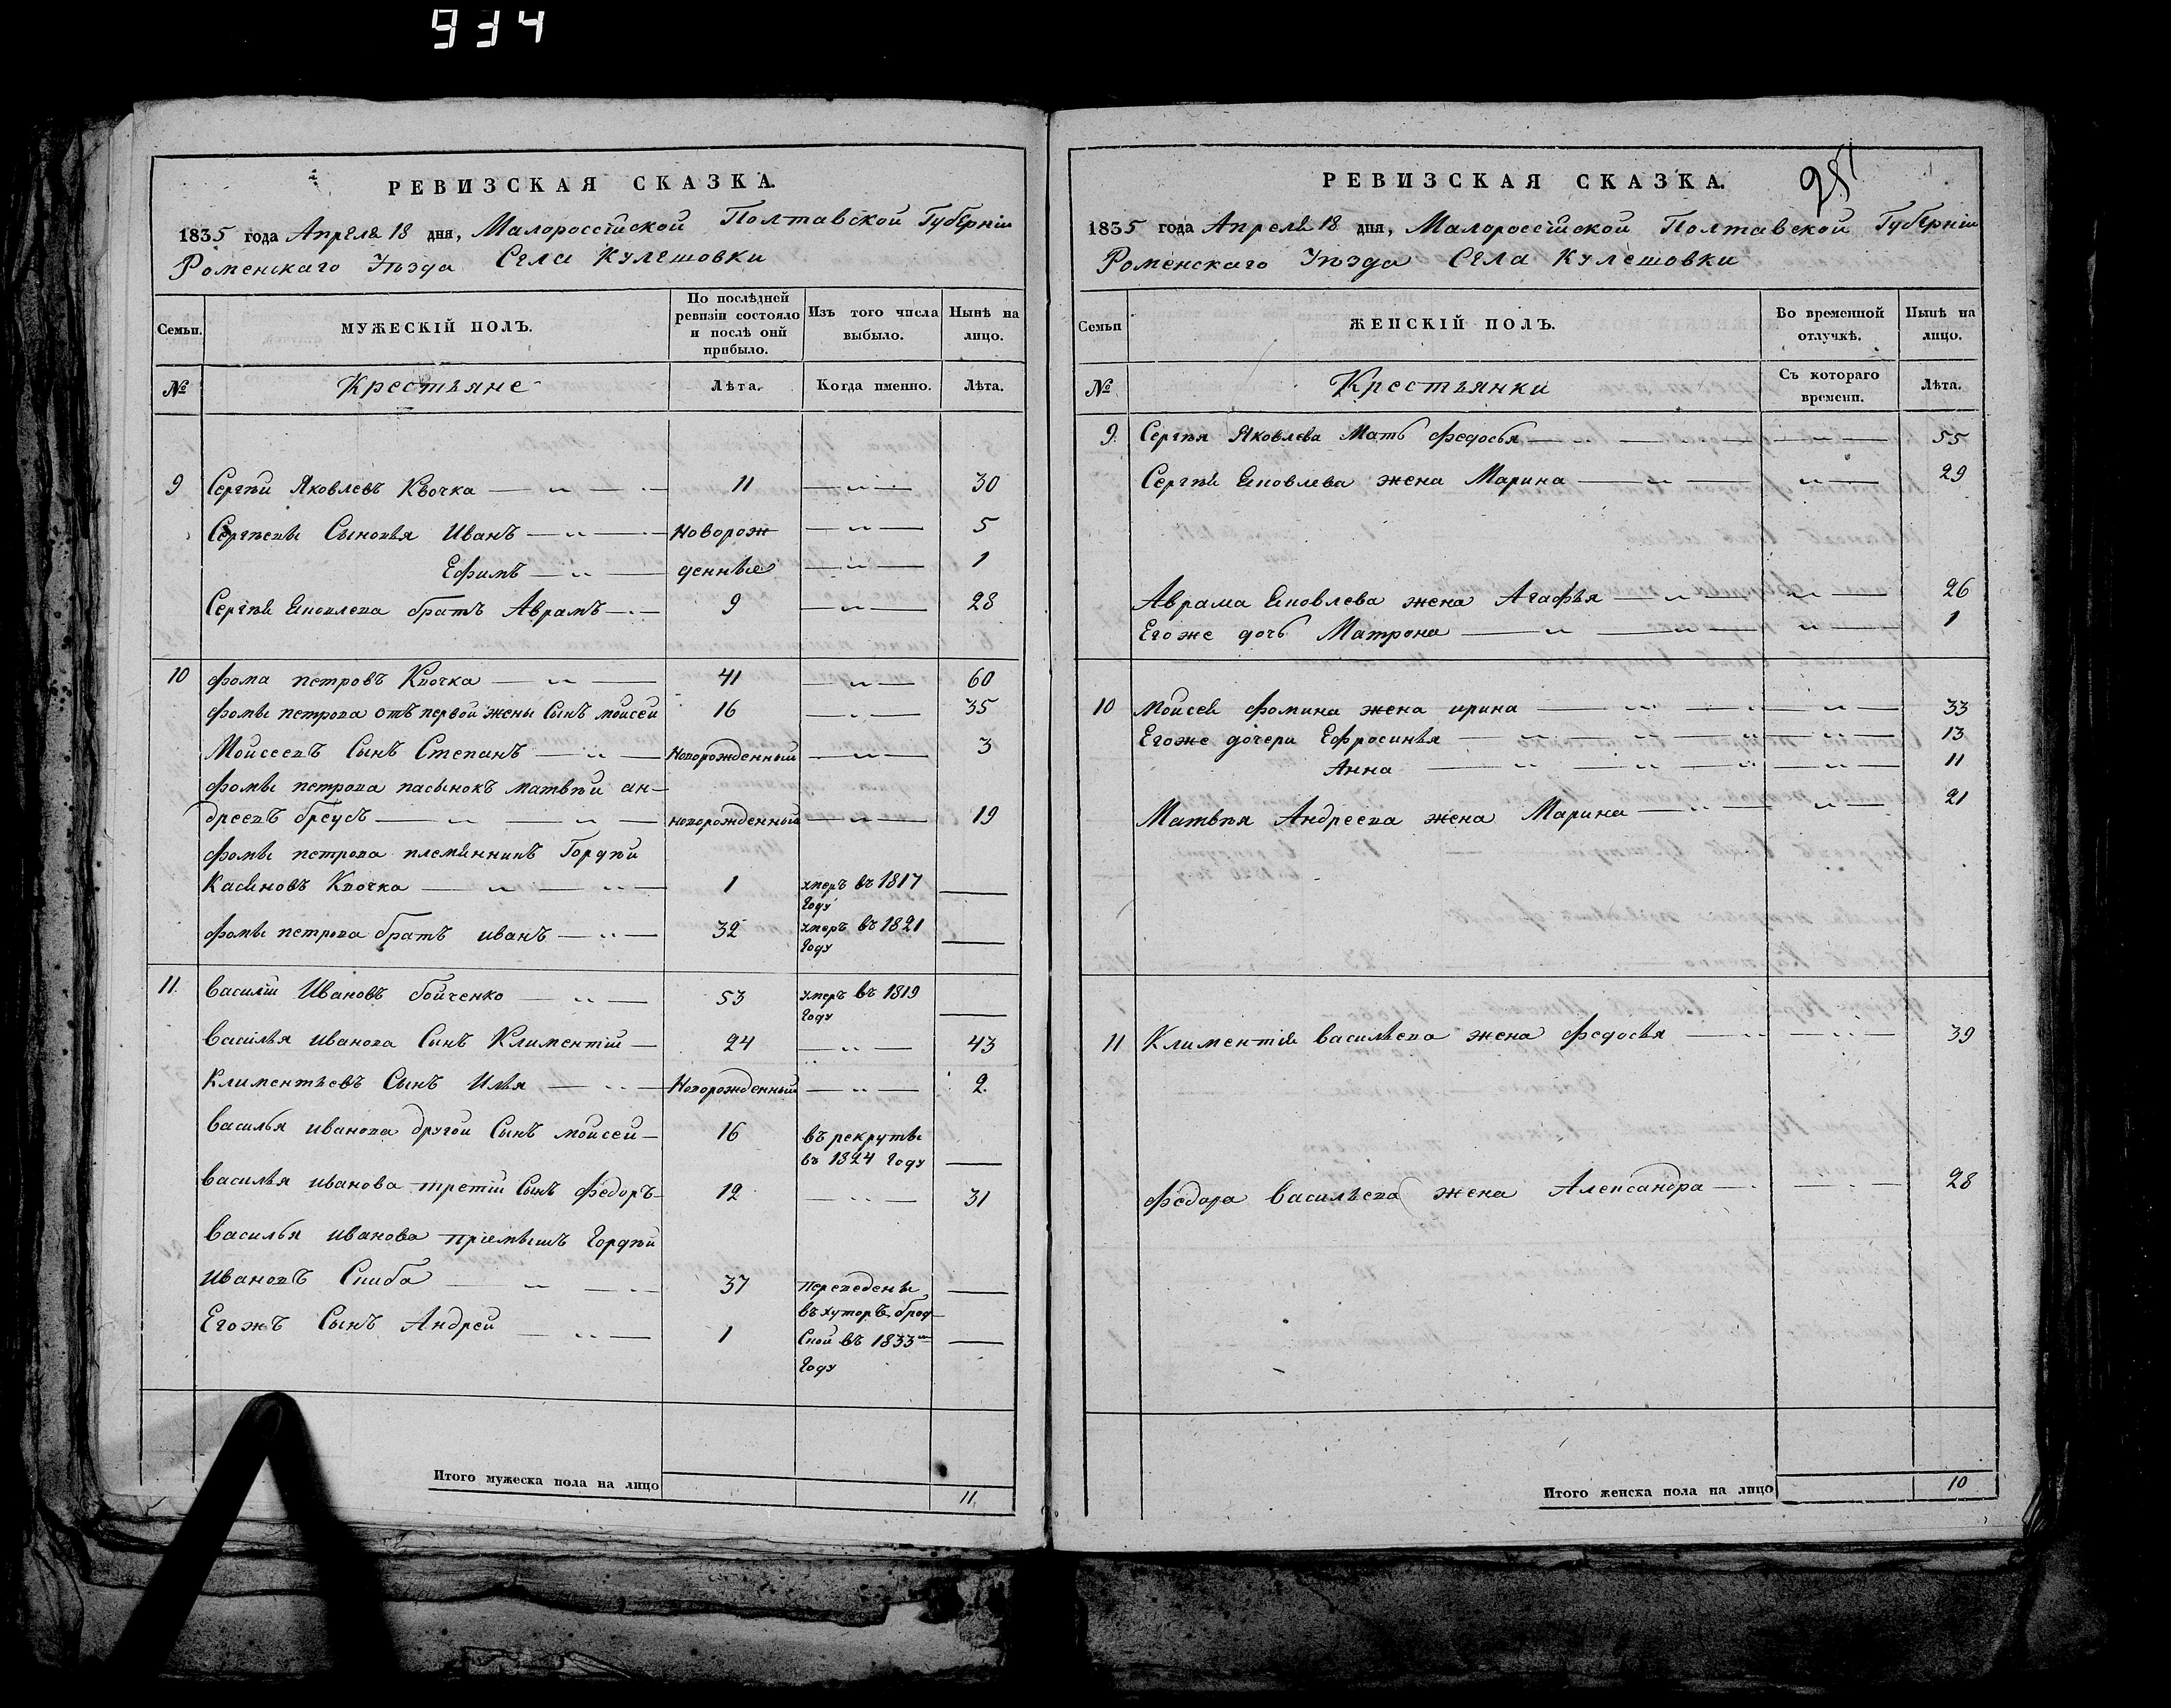 934
РЕВИЗСКАЯ СКАЗКА.
1835 года Апреля 18 дня, Малороссійской Полтавской Губерніи
Роменскаго Уѣзда Села Кулешовки
Семьи.
МУЖЕСКІЙ ПОЛЪ.
По послѣдней ревизіи состояло и послѣ оній прибыло.
Изъ того числа выбыло.
Нынѣ на лицо.
№
Крестьяне
Лѣта.
Когда именно.
Лѣта.
9 Сергѣй Яковлевъ Квочка 11 30
Сергѣевы Сыновья Иванъ новорож 5
Ефимъ денные 1
Сергѣя Яковлева братъ Аврамъ 9 28
10 фома петровъ Квочка 41 60
фомы петрова отъ первой жены Сынъ моисей 16 35
Моисеевъ Сынъ Степанъ новорожденный 3
фомы петрова пасынокъ матвѣй ан-
дреевъ бреусъ новорожденный 19
фомы петрова племянникъ Гордѣй
Касяновъ Квочка 1 умеръ въ 1817 году
фомы петрова братъ иванъ 32 умеръ въ 1821 году
11. василій Ивановъ бойченко 53 умеръ въ 1819 году
василья иванова Сынъ Климентій 24 43
Климентьевъ Сынъ Илья новорожденный 2.
василья иванова другой Сынъ моисей 16 въ рекруты въ 1824 году
василья иванова третій Сынъ федоръ 12 31
василья иванова пріемышъ гордѣй
ивановъ Скиба 37 переведены
Егожъ Сынъ Андрей 1 въ хуторъ брод-
ской въ 1833м
году
Итого мужеска пола на лицо 11.
РЕВИЗСКАЯ СКАЗКА.
251
1835 года Апреля 18 дня, Малороссійской Полтавской Губерніи
Роменскаго Уѣзда Села Кулешовки
Семьи
ЖЕНСКІЙ ПОЛЪ.
Во временной отлучкѣ.
Нынѣ на лицо.
№
Крестьянки
Съ котораго времени.
Лѣта.
9. Сергѣя Яковлева Мать федосья 55
Сергѣя Яковлева жена Марина 29
Аврама Яковлева жена Агафья 26
Егоже дочь Матрона 1
10 моисея фомина жена ирина 33
Егоже дочери Ефросинья 13
Анна 11
Матвѣя Андреева жена Марина 21
11 Климентія васильева жена федосья 39
федора васильева жена Александра 28
Итого женска пола на лицо 10